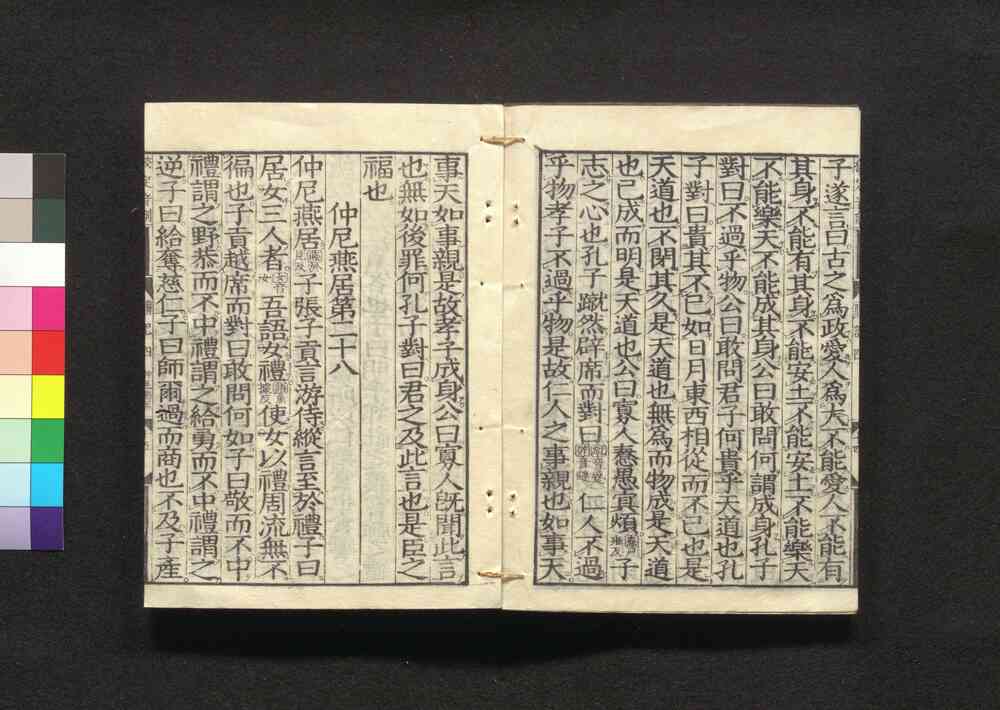 子遂言曰古之爲政愛人爲大不能愛人不能有
其身不能有其身不能安土不能安土不能樂天
不能樂天不能成其身公曰敢問何謂成身孔子
對曰不過乎物公曰敢問君子何貴乎天道也孔
子對曰貴其不已如日月東西相從而不已也是
天道也不閉其久是天道也無爲而物成是天道
也已成而明是天道也公曰寡人憃愚冥煩子
志之心也孔子蹴然辟席而對曰仁人不過
乎物孝子不過乎物是故仁人之事親也如事天
事天如事親是故孝子成身公曰寡人旣聞此言
也無如後罪何孔子對曰君之及此言也是臣之
福也
仲尼燕居第二十八
仲尼燕居子張子貢言游侍縱言至於禮子曰
居女三人者吾語女禮使女以禮周流無不
徧也子貢越席而對曰敢問何如子曰敬而不中
禮謂之野恭而不中禮謂之給勇而不中禮謂之
逆子曰給奪慈仁子曰師爾過而商也不及子產